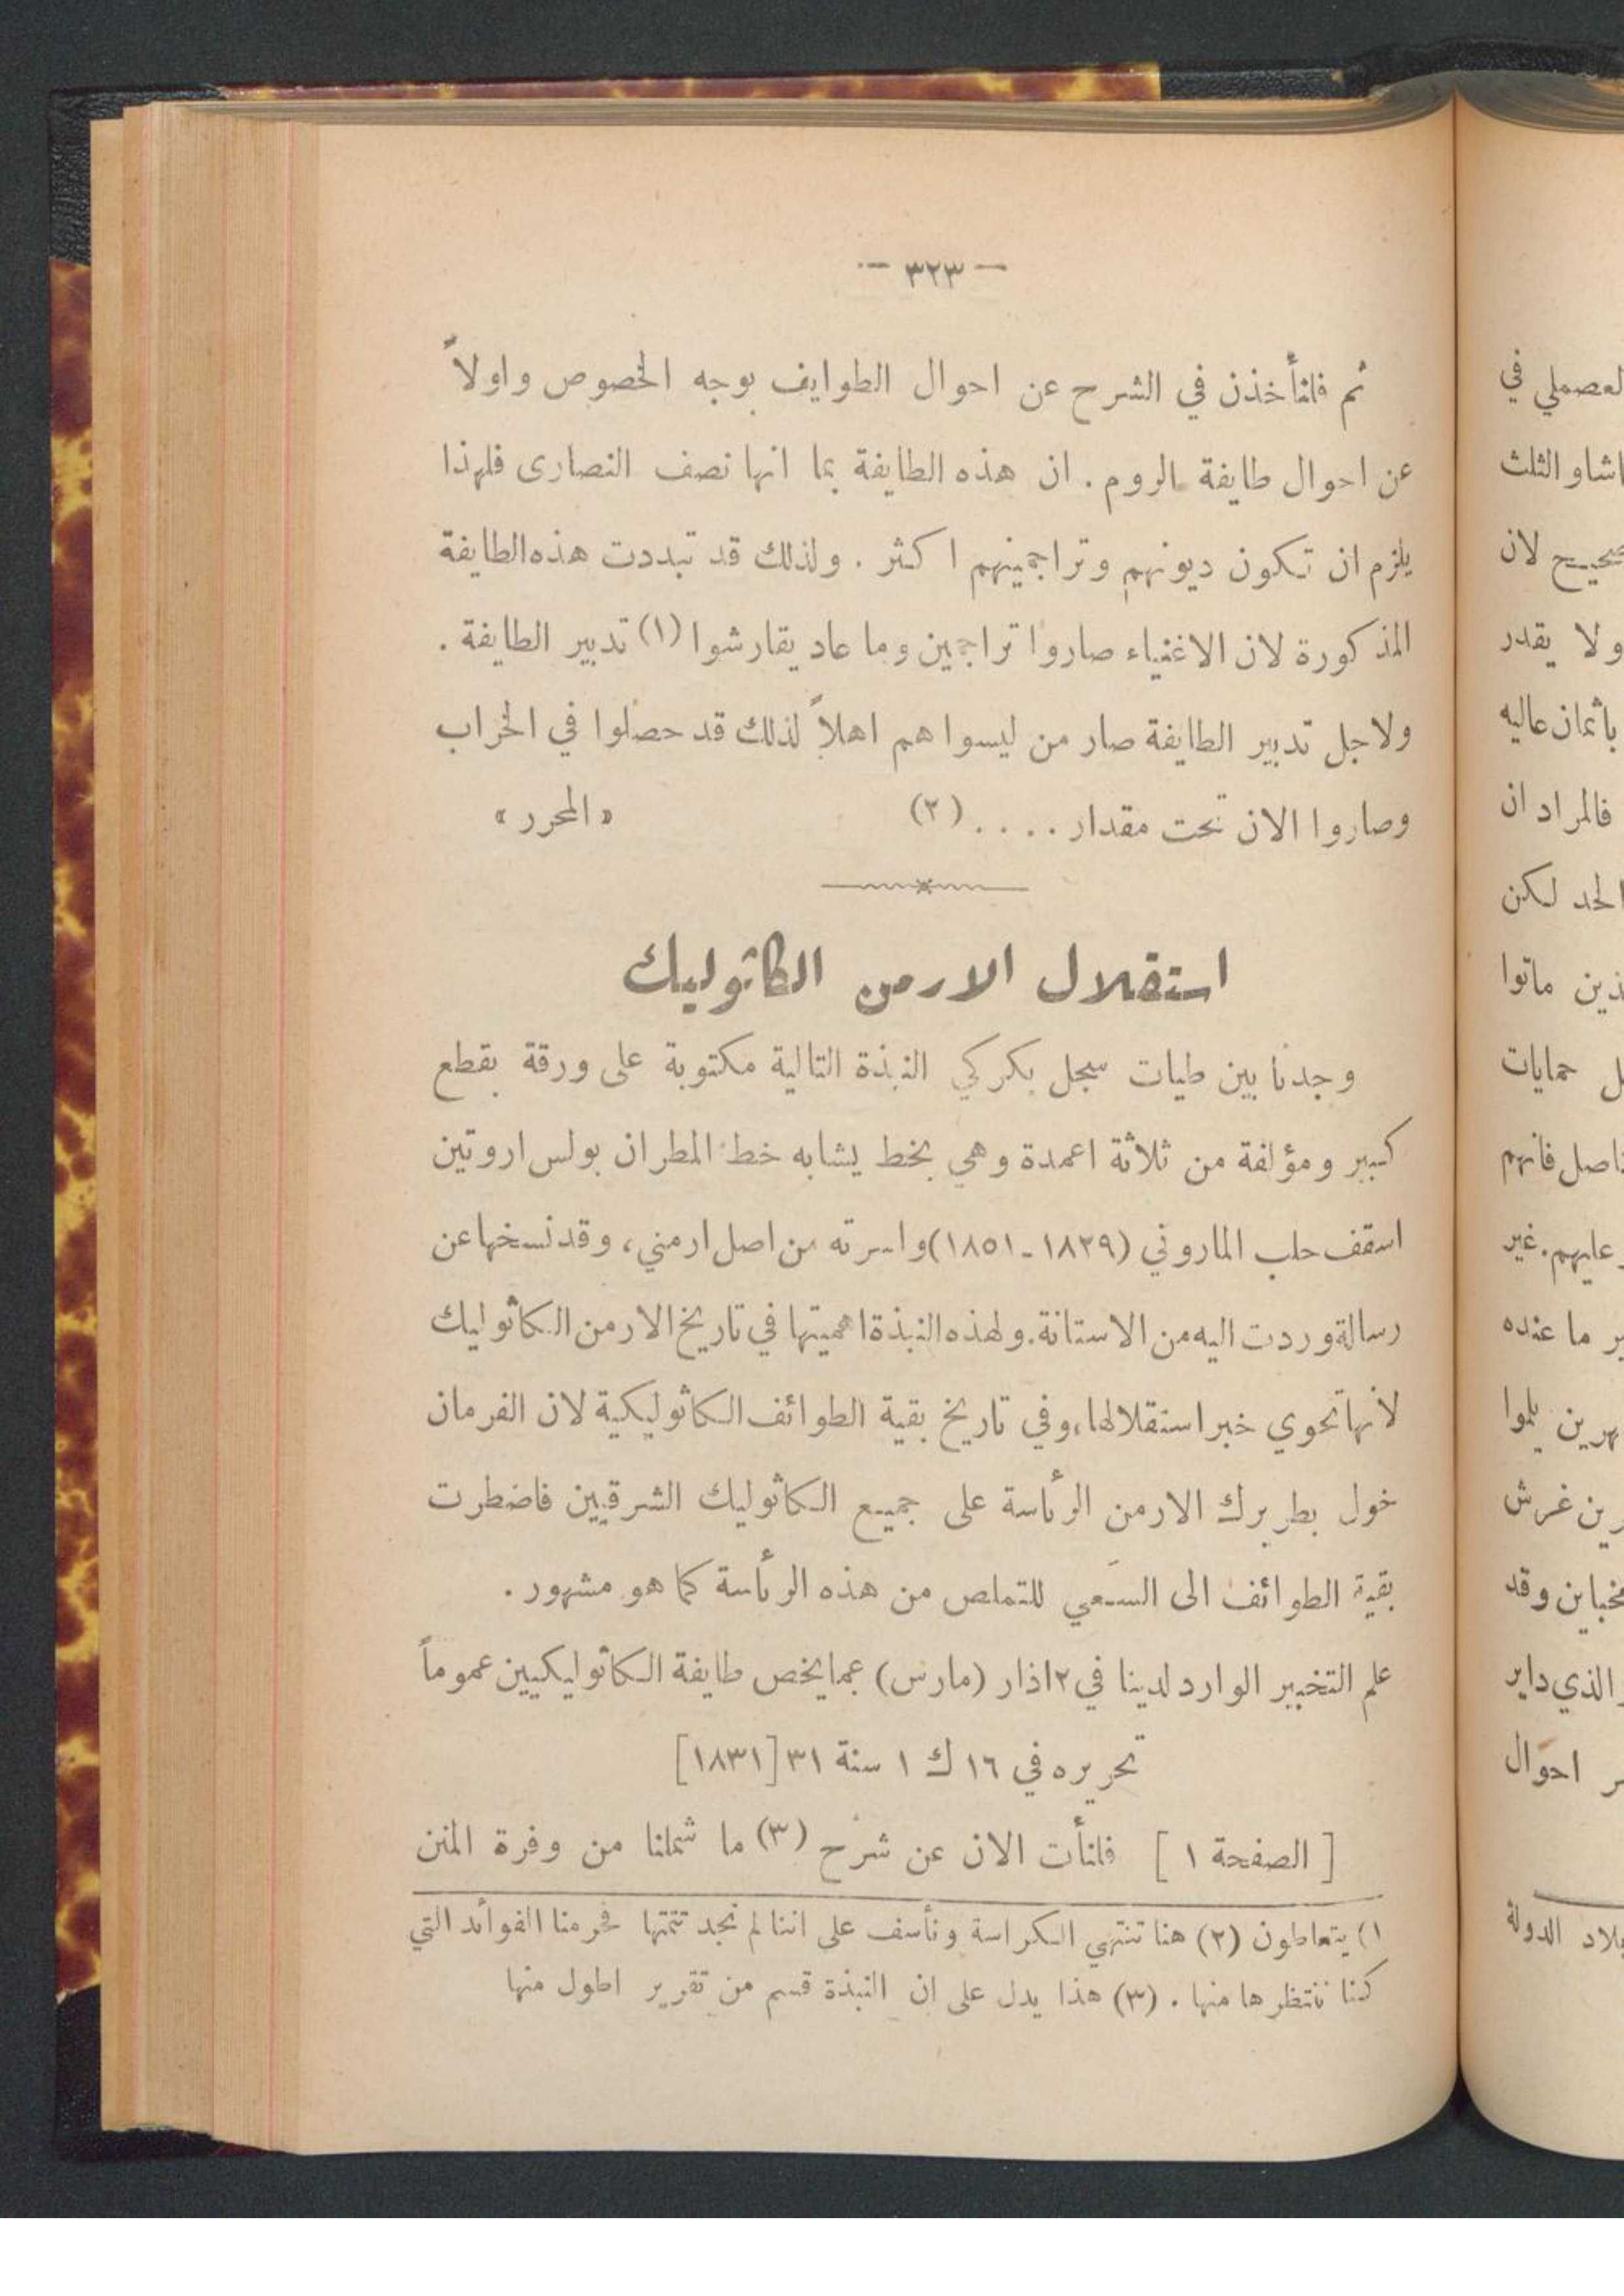 — ٣٢٣ —
ثم فلنأخذن في الشرح عن احوال الطوايف بوجه الخصوص واولاً
عن احوال طايفة الروم. ان هذه الطايفة بما انها نصف النصارى فلهذا
يلزم ان تكون ديونهم وتراجمينهم اكثر. ولذلك قد تبددت هذه الطايفة
المذكورة لان الاغنياء صاروا تراجمين وما عاد يقارشوا (١) تدبير الطايفة.
ولاجل تدبير الطايفة صار من ليسوا هم اهلاً لذلك قد حصلوا في الخراب
وصاروا الان تحت مقدار .... (٢) «المحرر»
استقلال الارمن الكاثوليك
وجدنا بين طيات سجل بكركي النبذة التالية مكتوبة على ورقة بقطع
كبير ومؤلفة من ثلاثة اعمدة وهي بخط يشابه خط المطران بولس اروتين
اسقف حلب الماروني (١٨٢٩-١٨٥١) واسرته من اصل ارمني، وقد نسخها عن
رسالة وردت اليه من الاستانة. ولهذه النبذة اهميتها في تاريخ الارمن الكاثوليك
لأنها تحوي خبر استقلالها، وفي تاريخ بقية الطوائف الكاثوليكية لان الفرمان
خول بطريرك الارمن الرئاسة على جميع الكاثوليك الشرقيين فاضطرت
بقية الطوائف الى السعي للتملص من هذه الرئاسة كما هو مشهور.
علم التخبير الوارد لدينا في ٢ اذار (مارس) عما يخص طايفة الكاثوليكيين عموماً
تحريره في ١٦ ك ١ سنة ٣١ [١٨٣١]
[الصفحة ١] فلنأت الان عن شرح (٣) ما شملنا من وفرة المنن
١) يتعاطون (٢) هنا تنتهي الكراسة ونأسف على اننا لم نجد تتمتها فحرمنا الفوائد التي
كنا ننتظرها منها. (٣) هذا يدل على ان النبذة قسم من تقرير اطول منها
العصملي في
اشا والثلث
صحيح لان
ولا يقدر
باثمان عاليه
فالمراد ان
الحد لكن
ذين ماتوا
ل حمايات
ناصل فانهم
عليهم. غير
ير ما عنده
هرين يلموا
رين غرش
وقد
الذي داير
احوال
بلاد الدولة